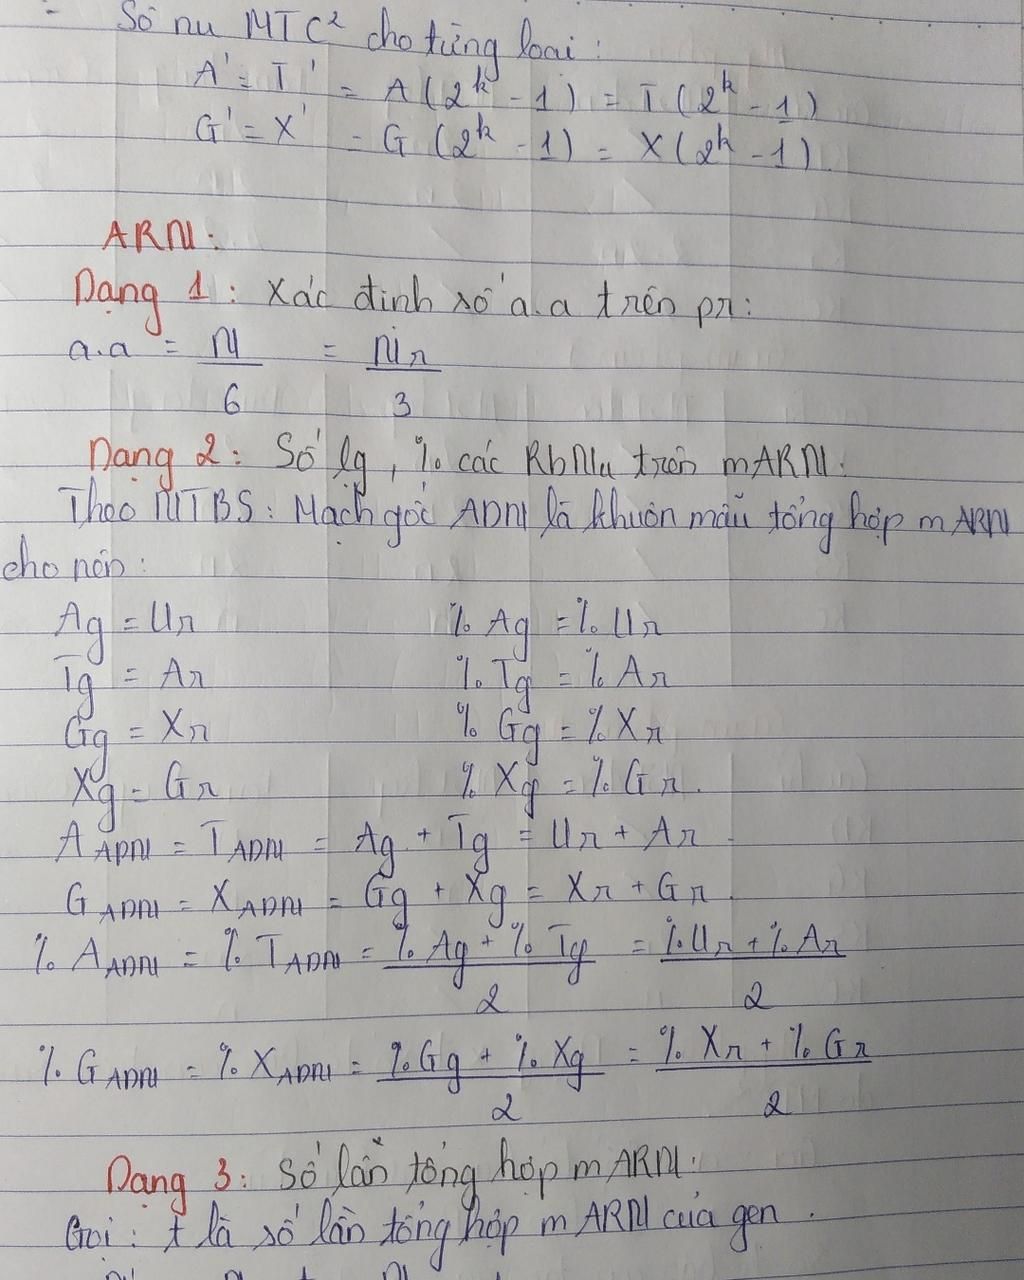 - Số nu MTC² cho từng loại :
A' = T' = A(2ᵏ - 1) = T(2ᵏ - 1)
G' = X' = G(2ᵏ - 1) = X(2ᵏ - 1).
ARN :
Dạng 1 : Xác định số a.a trên pr :
a.a = N/6 = Nr/3
Dạng 2 : Số lg, % các RbNu trên mARN.
Theo NTBS : Mạch gốc ADN là khuôn mẫu tổng hợp mARN
cho nên :
Ag = Ur % Ag = % Ur
Tg = Ar % Tg = % Ar
Gg = Xr % Gg = % Xr
Xg = Gr % Xg = % Gr.
A ADN = T ADN = Ag + Tg = Ur + Ar
G ADN = X ADN = Gg + Xg = Xr + Gr.
% A ADN = % T ADN = (% Ag + % Tg)/2 = (% Ur + % Ar)/2
% G ADN = % X ADN = (% Gg + % Xg)/2 = (% Xr + % Gr)/2
Dạng 3 : Số lần tổng hợp mARN.
Gọi : t là số lần tổng hợp mARN của gen.